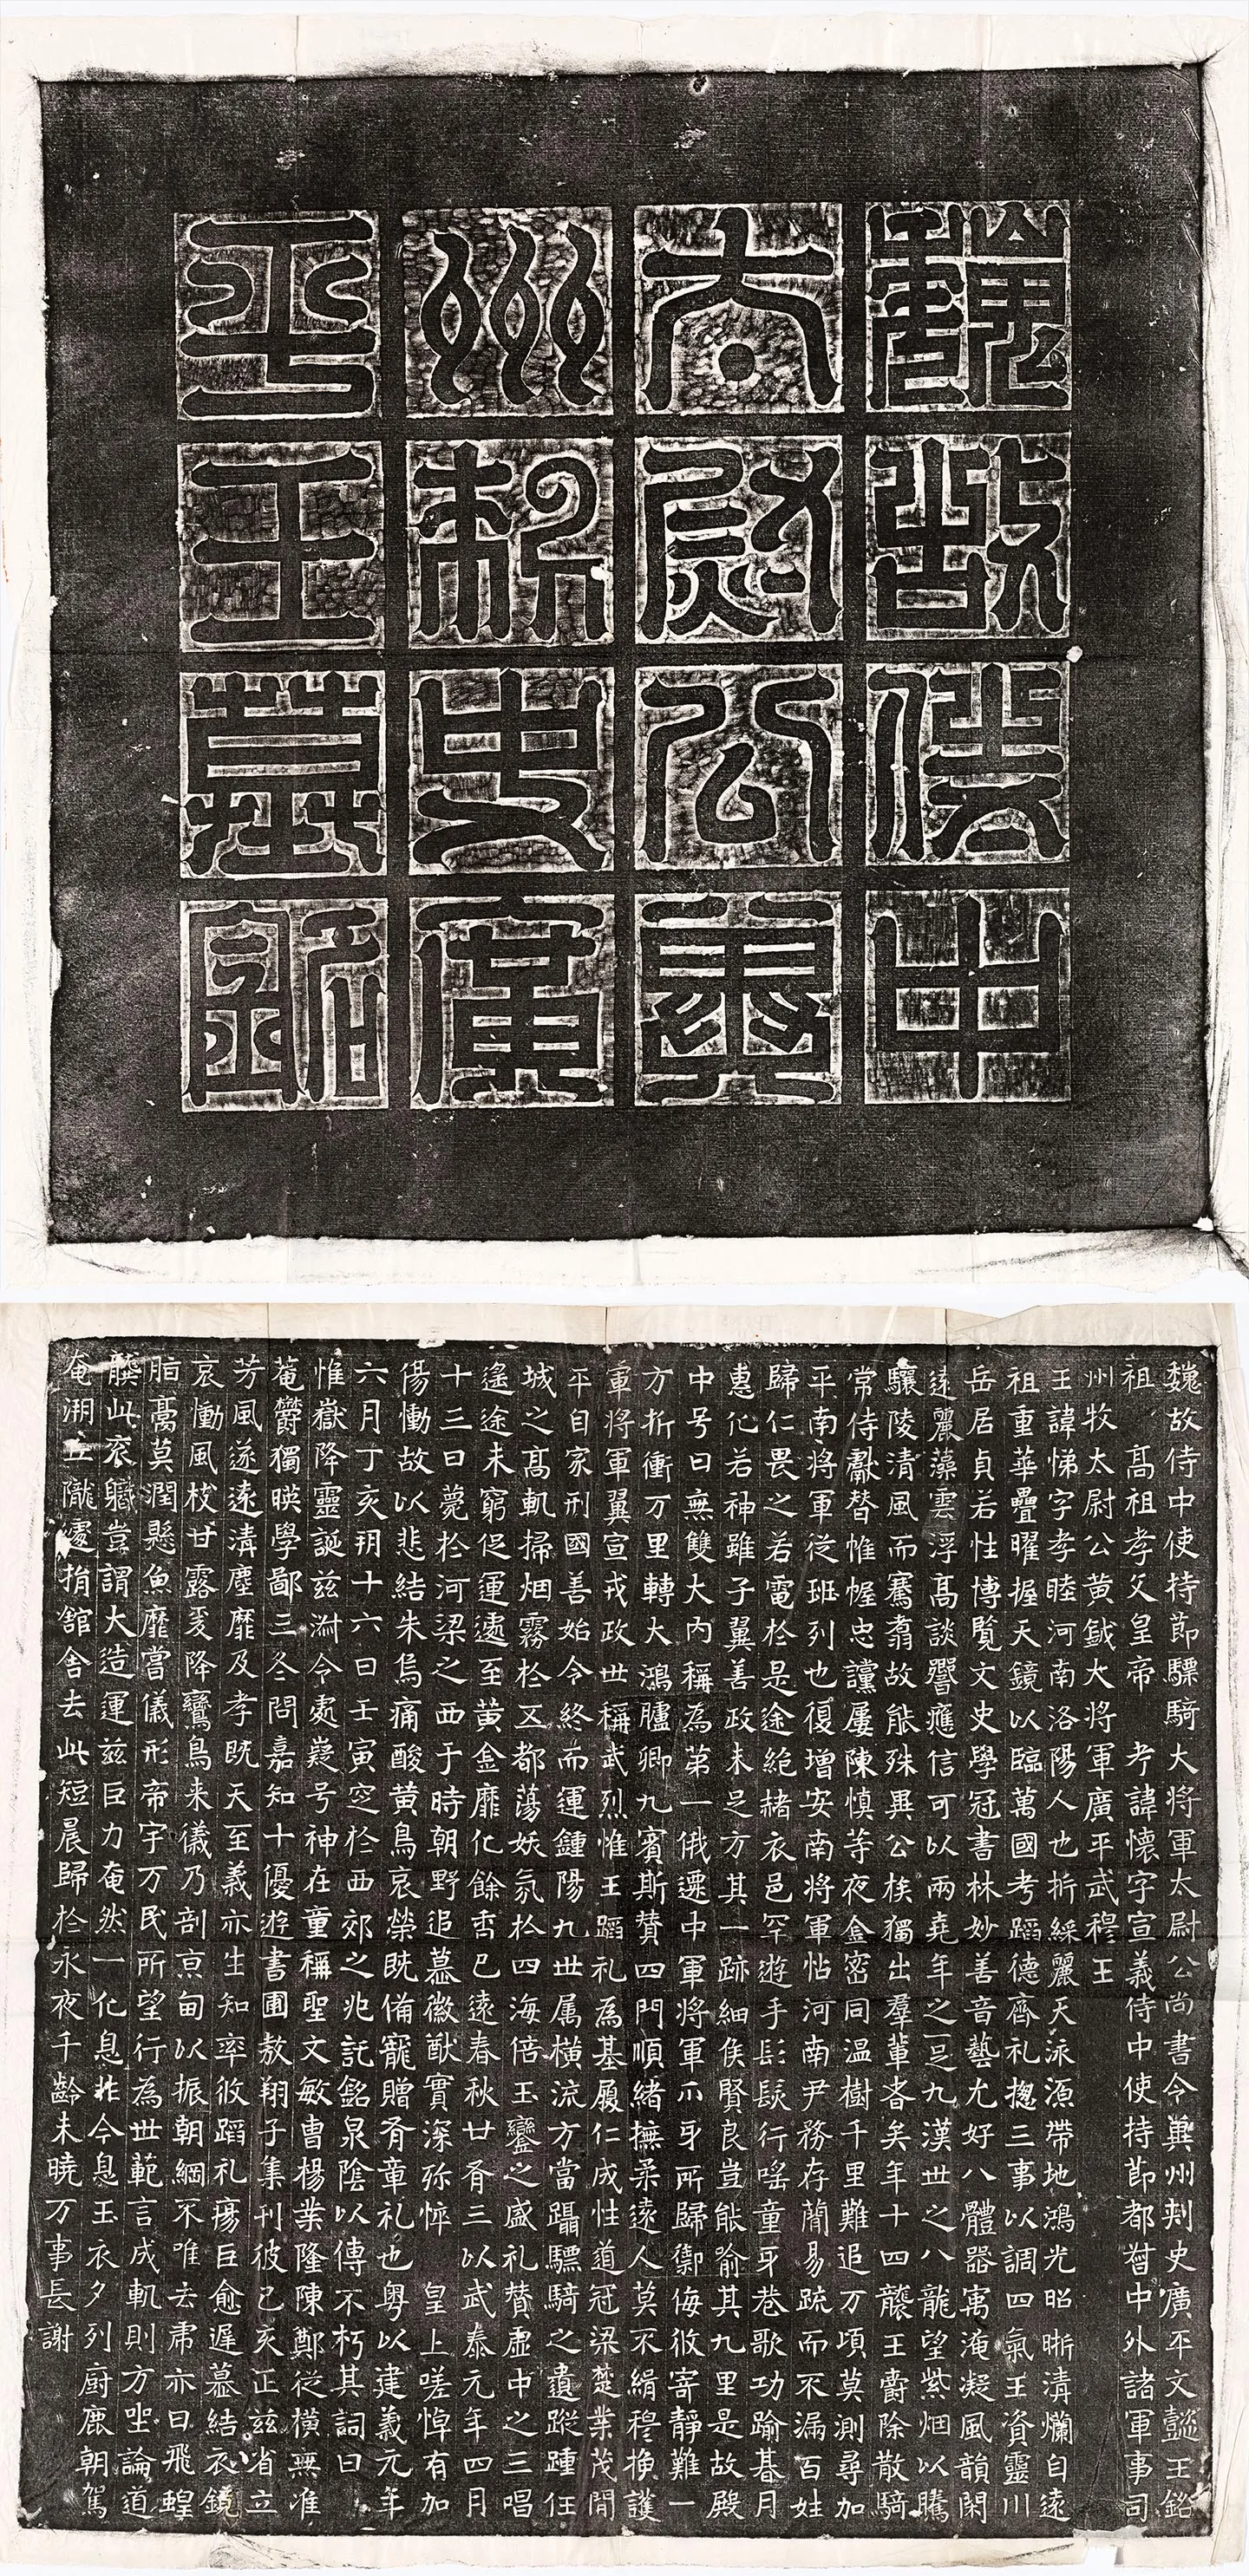 魏故侍中
太尉公冀
州刺史廣
平王墓銘
魏故侍中使持節驃騎大將軍太尉公尚書令冀州刾史廣平文懿王銘
祖　高祖孝文皇帝　考諱懷字宣義侍中使持節都督中外諸軍事司
州牧太尉公黃鉞大將軍廣平武穆王
王諱悌字孝睦河南洛陽人也折綵麗天泳源帶地鴻光昭晣清爛自遠
祖重華疊曜握天鏡以臨萬國考蹈德齊礼揔三事以調四氣王資靈川
岳居貞若性博覽文史學冠書林妙善音藝尤好八體器寓淹凝風韻閑
遠麗藻雲浮高談響應信可以兩堯年之一足九漢世之八龍望紫烟以騰
驤陵清風而騫翥故能殊異公族獨出羣輩者矣年十四襲王爵除散騎
常侍獻替惟幄忠讜屢陳慎等夜金密同温樹千里難追万頃莫測尋加
平南將軍從班列也復增安南將軍帖河南尹務存蕑易疏而不漏百姓
歸仁畏之若電於是途絶赭衣邑罕遊手髟髮行謠童牙巷歌功踰朞月
惠化若神雖子翼善政未足方其一跡細侯賢良豈能喻其九里是故殿
中号曰無雙大內稱為第一俄遷中軍將軍爪牙所歸禦侮攸寄靜難一
方折衝万里轉大鴻臚卿九賓斯贊四門順緒撫柔遠人莫不緝穆換護
軍將軍翼宣戎政世稱武烈惟王蹈礼為基履仁成性道冠梁楚業茂閒
平自家刑國善始令終而運鍾陽九世属橫流方當躡驃騎之遺蹤踵任
城之高軌掃烟霧於五都蕩妖氛於四海倍玉鑾之盛礼贊虛中之三唱
遥途未窮促運遽至黃金靡化餘香已遠春秋廿有三以武泰元年四月
十三日薨於河梁之西于時朝野追慕徽猷實深弥悴　皇上嗟悼有加
傷慟故以悲結朱烏痛酸黃鳥哀榮既備寵贈有章礼也粵以建義元年
六月丁亥玥十六日壬寅窆於西郊之兆託銘泉陰以傳不朽其詞曰
惟嶽降靈誕茲淵令處嶷号神在童稱聖文敏曹楊業隆陳鄭從橫無准
菴欝獨暎學鄙三冬問嘉知十優遊書圃敖翔子集刊彼己亥正兹省立
芳風遂遠清塵靡及孝既天至義亦生知率攸蹈礼瘍巨愈遲慕結衣鏡
哀慟風枝甘露爰降鸞鳥来儀乃剖京甸以振朝綱不唯去肅亦曰飛蝗
脂膏莫潤懸魚靡嘗儀形帝宇万民所望行為世範言成軌則方坐論道
膺此衮軄豈謂大造運兹巨力奄然一化息昨今息玉衣夕列廚鹿朝駕
奄溯丘隴處捐舘舍去此短晨歸於永夜千齡未曉万事長謝